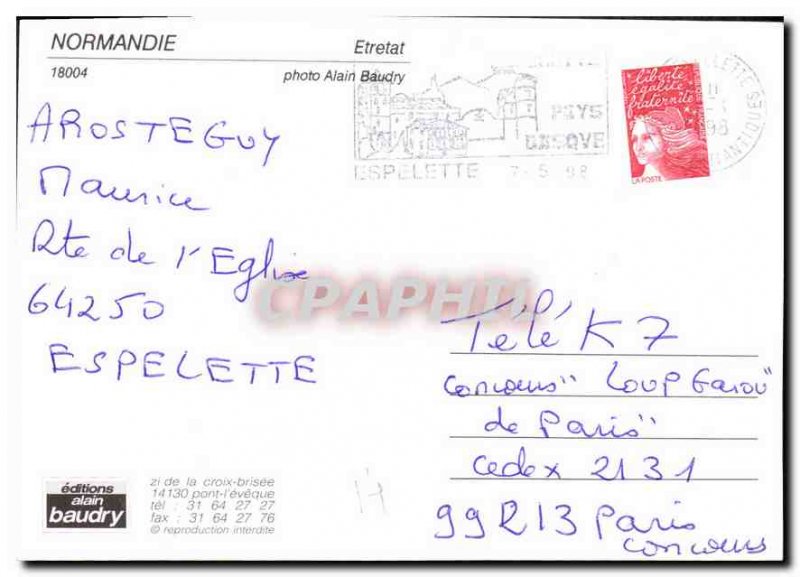 NORMANDIE
Etretat
18004
photo Alain Baudry
PAYS
BASQUE
ESPELETTE 7-5 98
liberté
égalité
fraternité
LA POSTE
98
AROSTEGUY
Maurice
Rte de l'Eglise
64250
ESPELETTE
CPAPHIL
Télé K7
concours "Loup Garou
de Paris"
cedex 2131
99213 Paris
concours
éditions
alain
baudry
zi de la croix-brisée
14130 pont-l'évêque
tél : 31 64 27 27
fax : 31 64 27 76
© reproduction interdite